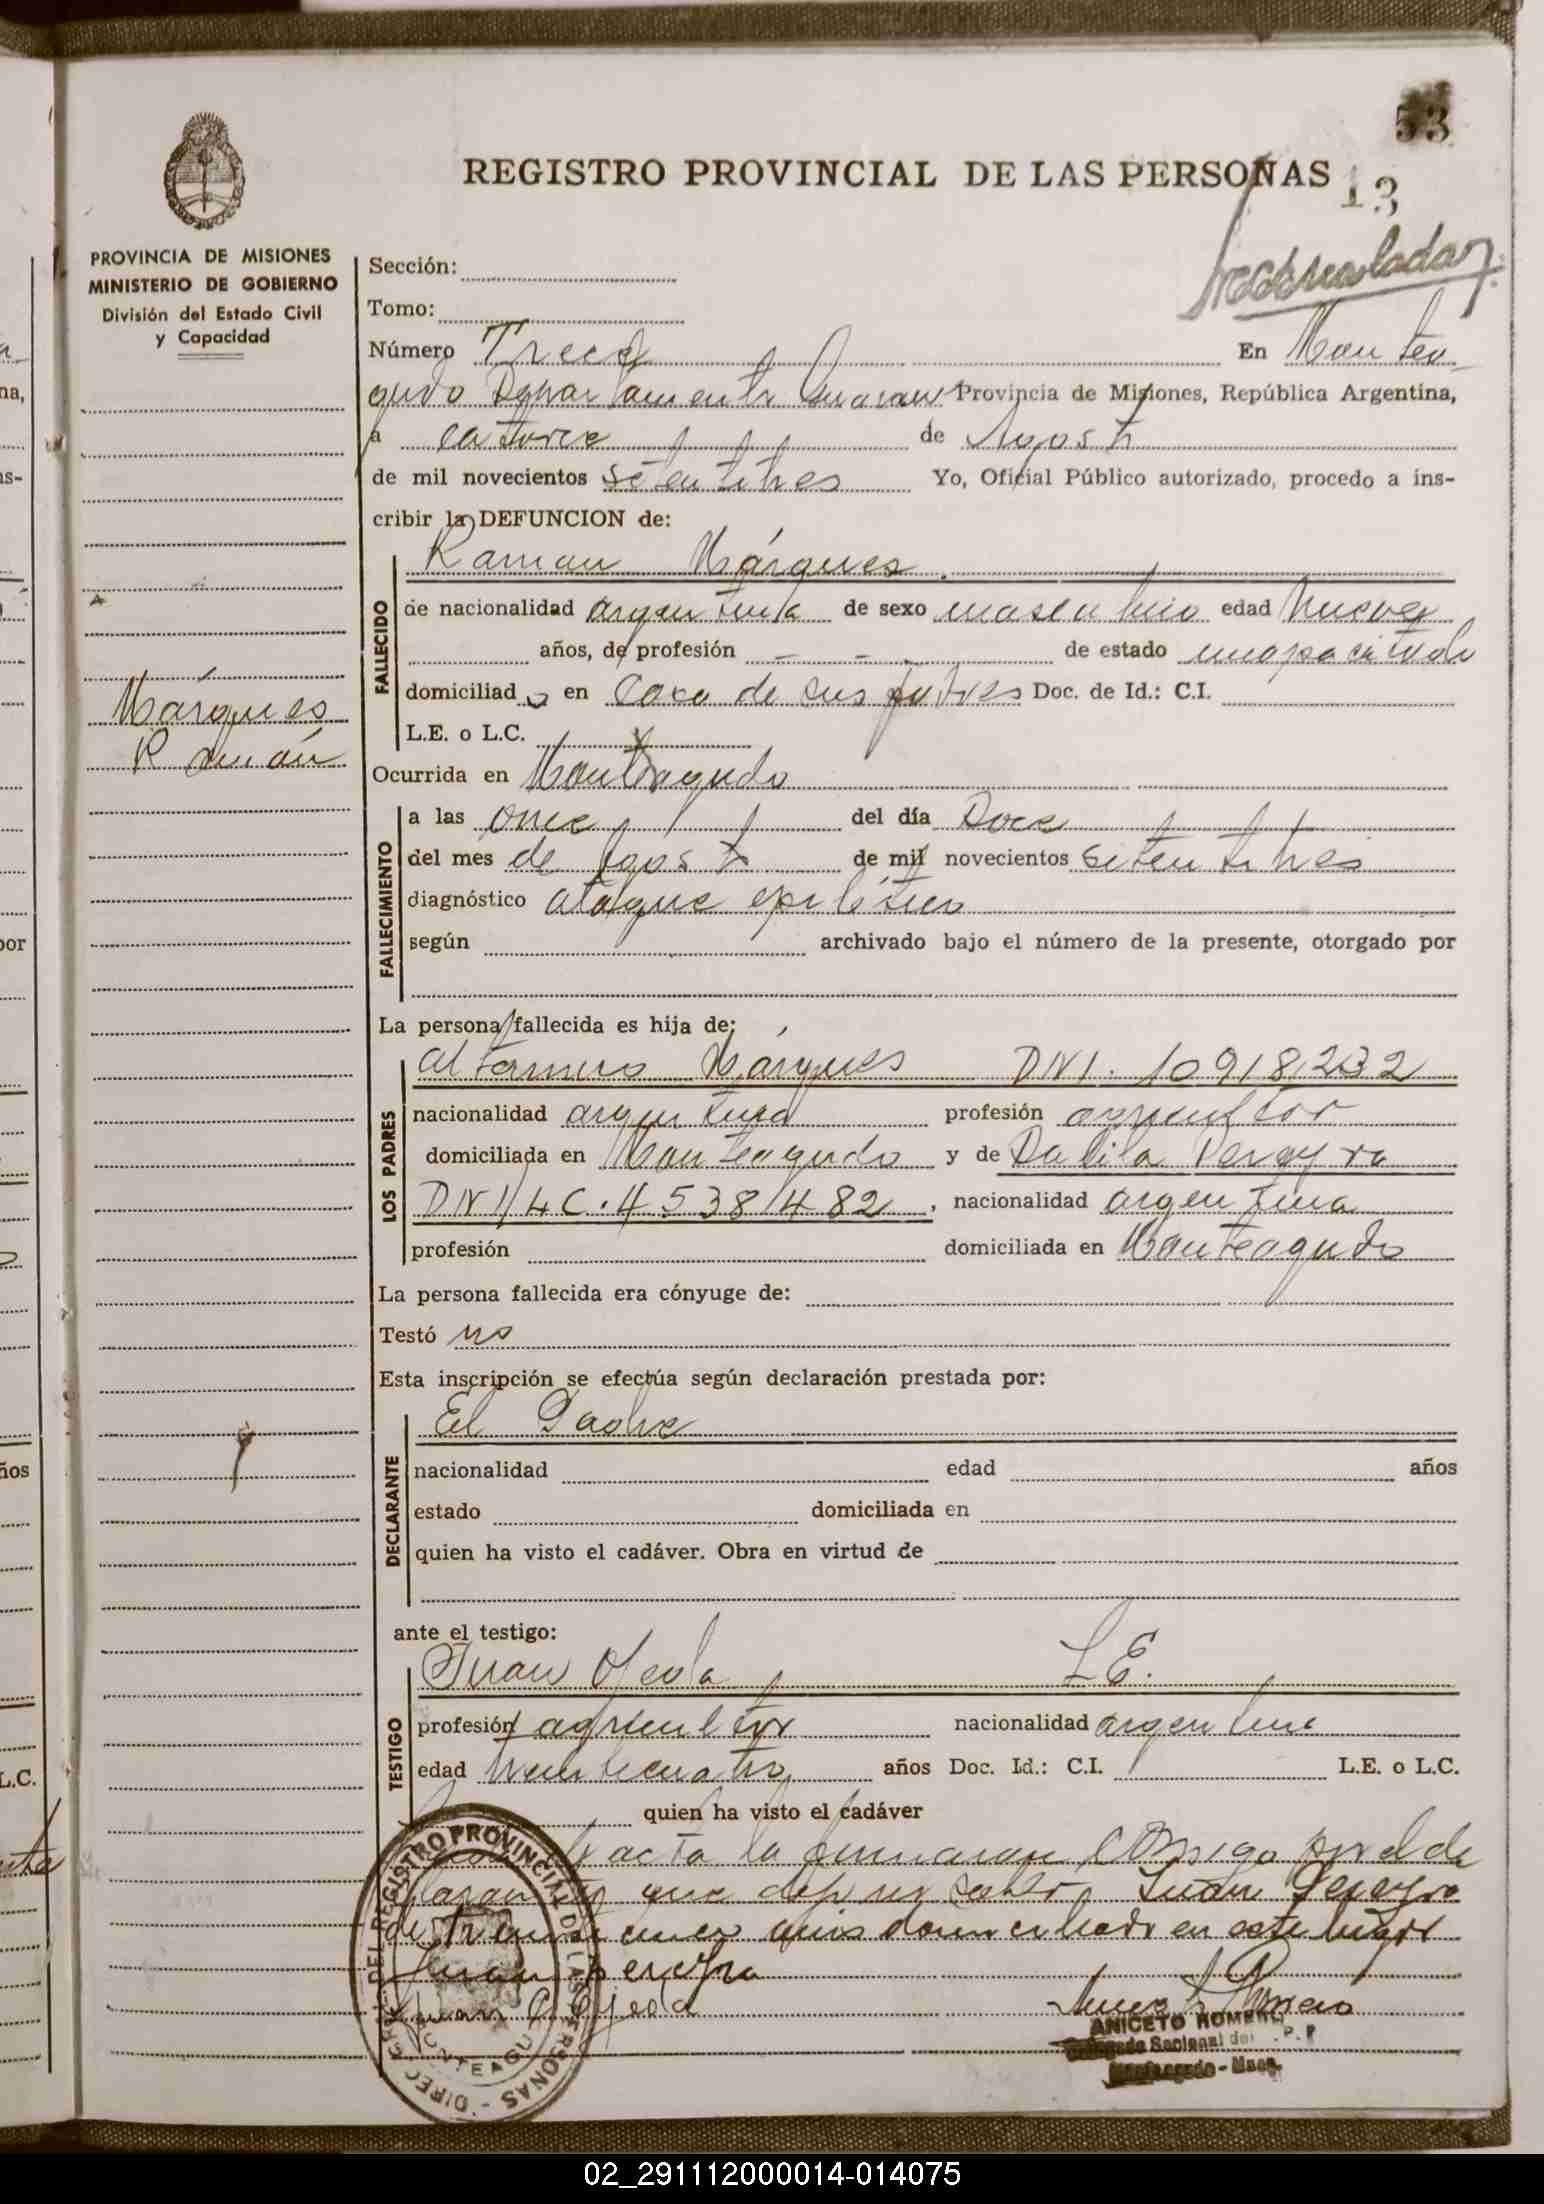 53
REGISTRO PROVINCIAL DE LAS PERSONAS
13
PROVINCIA DE MISIONES
MINISTERIO DE GOBIERNO
División del Estado Civil
y Capacidad
Sección:
Tomo:
Número Trece En Montea
gudo Departamento Guarani Provincia de Misiones, República Argentina,
a catorce de Agosto
de mil novecientos setentitres Yo, Oficial Público autorizado, procedo a ins-
cribir la DEFUNCION de:
Raman Márques
FALLECIDO
de nacionalidad argentina de sexo masculino edad Nueve
años, de profesión - - de estado
domiciliad o en Casa de sus padres Doc. de Id.: C.I.
L.E. o L.C.
Márques
Ramán
Ocurrida en Monteagudo
FALLECIMIENTO
a las once del día Doce
del mes de Agosto de mil novecientos setentitres
diagnóstico ataque epilético
según archivado bajo el número de la presente, otorgado por
La persona fallecida es hija de:
LOS PADRES
Márques DNI. 10918232
nacionalidad argentina profesión agricultor
domiciliada en Monteagudo y de Dalila Pereyra
DNI/LC. 4538482, nacionalidad argentina
profesión domiciliada en Monteagudo
La persona fallecida era cónyuge de:
Testó no
Esta inscripción se efectúa según declaración prestada por:
DECLARANTE
El Padre
nacionalidad edad años
estado domiciliada en
quien ha visto el cadáver. Obra en virtud de
ante el testigo:
TESTIGO
Juan Ojeda L.E.
profesión agricultor nacionalidad argentina
edad treinticuatro años Doc. Id.: C.I. L.E. o L.C.
quien ha visto el cadáver
acta la firmaran conmigo por el de
que dijo no saber, Juan Pereyra
de treinticinco años domiciliado en este lugar
Juan Pereyra
Juan Ojeda
ANICETO ROMERO
DEL REGISTRO PROVINCIAL DE LAS PERSONAS
MONTEAGUDO
02_291112000014-014075